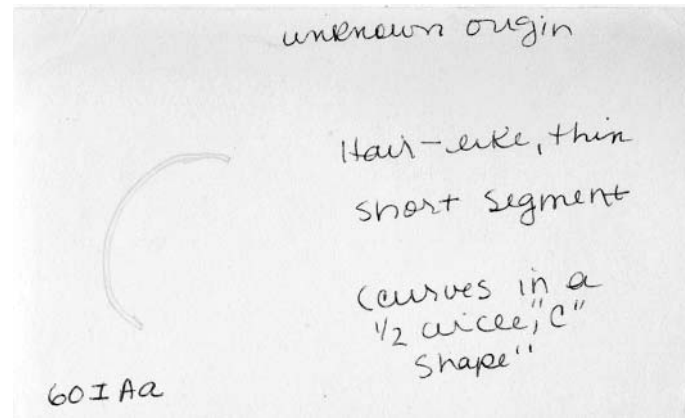 unknown origin
Hair-like, thin
short segment
(curves in a
1/2 circle, "C"
shape"
60IAa